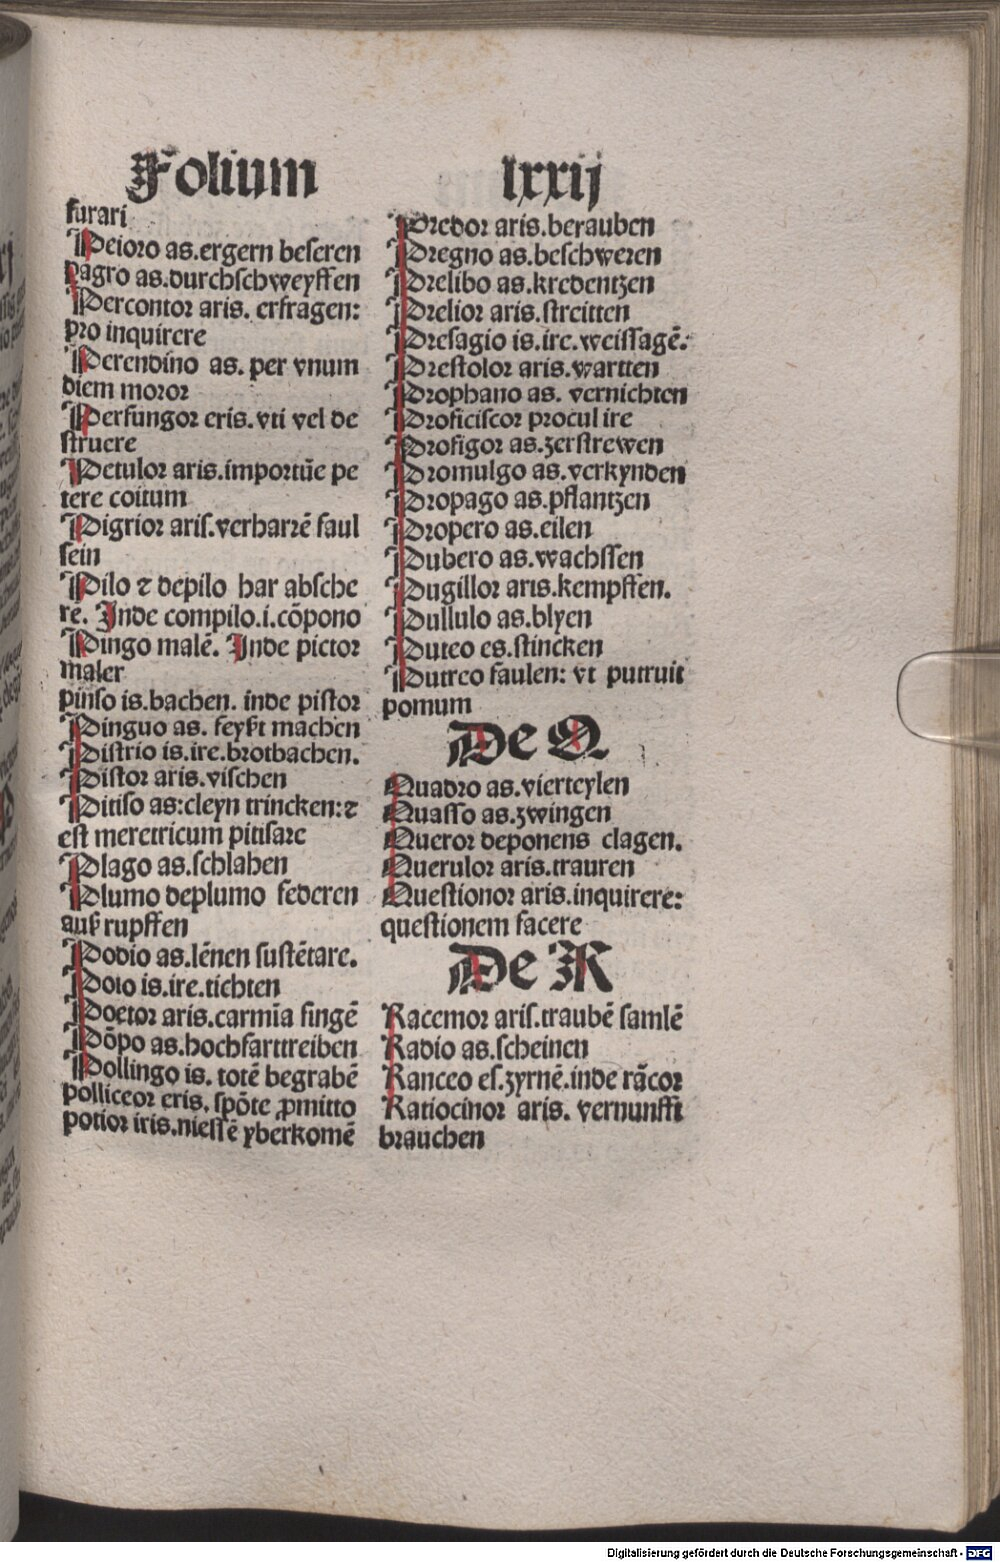 Folium lxxij
furari
Peioro as.ergern beseren
Pagro as.durchschweyffen
Percontor aris. erfragen:
pro inquirere
Perendino as. per vnum
diem moror
Perfungor eris. vti vel de
struere
Petulor aris.importūe pe
tere coitum
Pigrior aris.verharrē faul
sein
Pilo ⁊ depilo har absche
re. Inde compilo.i.cōpono
Pingo malē. Inde pictor
maler
pinso is.bachen. inde pistor
Pinguo as. feyßt machen
Pistrio is.ire.brotbachen.
Pistor aris.vischen
Pitiso as:cleyn trincken:⁊
est meretricum pitisare
Plago as.schlahen
Plumo deplumo federen
auß rupffen
Podio as.lēnen sustētare.
Poio is.ire.tichten
Poetor aris.carmīa fingē
Pōpo as.hochfarttreiben
Pollingo is. totē begrabē
polliceor eris. spōte ꝓmitto
potior iris.niessē yberkomē
Predor aris.berauben
Pregno as.beschweren
Prelibo as.kredentzen
Prelior aris.streitten
Presagio is.ire.weissagē.
Prestolor aris.wartten
Prophano as. vernichten
Proficiscor procul ire
Profigor as.zerstrewen
Promulgo as.verkynden
Propago as.pflantzen
Propero as.eilen
Pubero as.wachssen
Pugillor aris.kempffen.
Pullulo as.blyen
Puteo es.stincken
Putreo faulen: vt putruit
pomum
De Q
Quadro as.vierteylen
Quasso as.zwingen
Queror deponens clagen.
Querulor aris.trauren
Questionor aris.inquirere:
questionem facere
De R
Racemor aris.traubē samlē
Radio as.scheinen
Ranceo es.zyrnē.inde rācor
Ratiocinor aris. vernunfft
brauchen
Digitalisierung gefördert durch die Deutsche Forschungsgemeinschaft - DFG